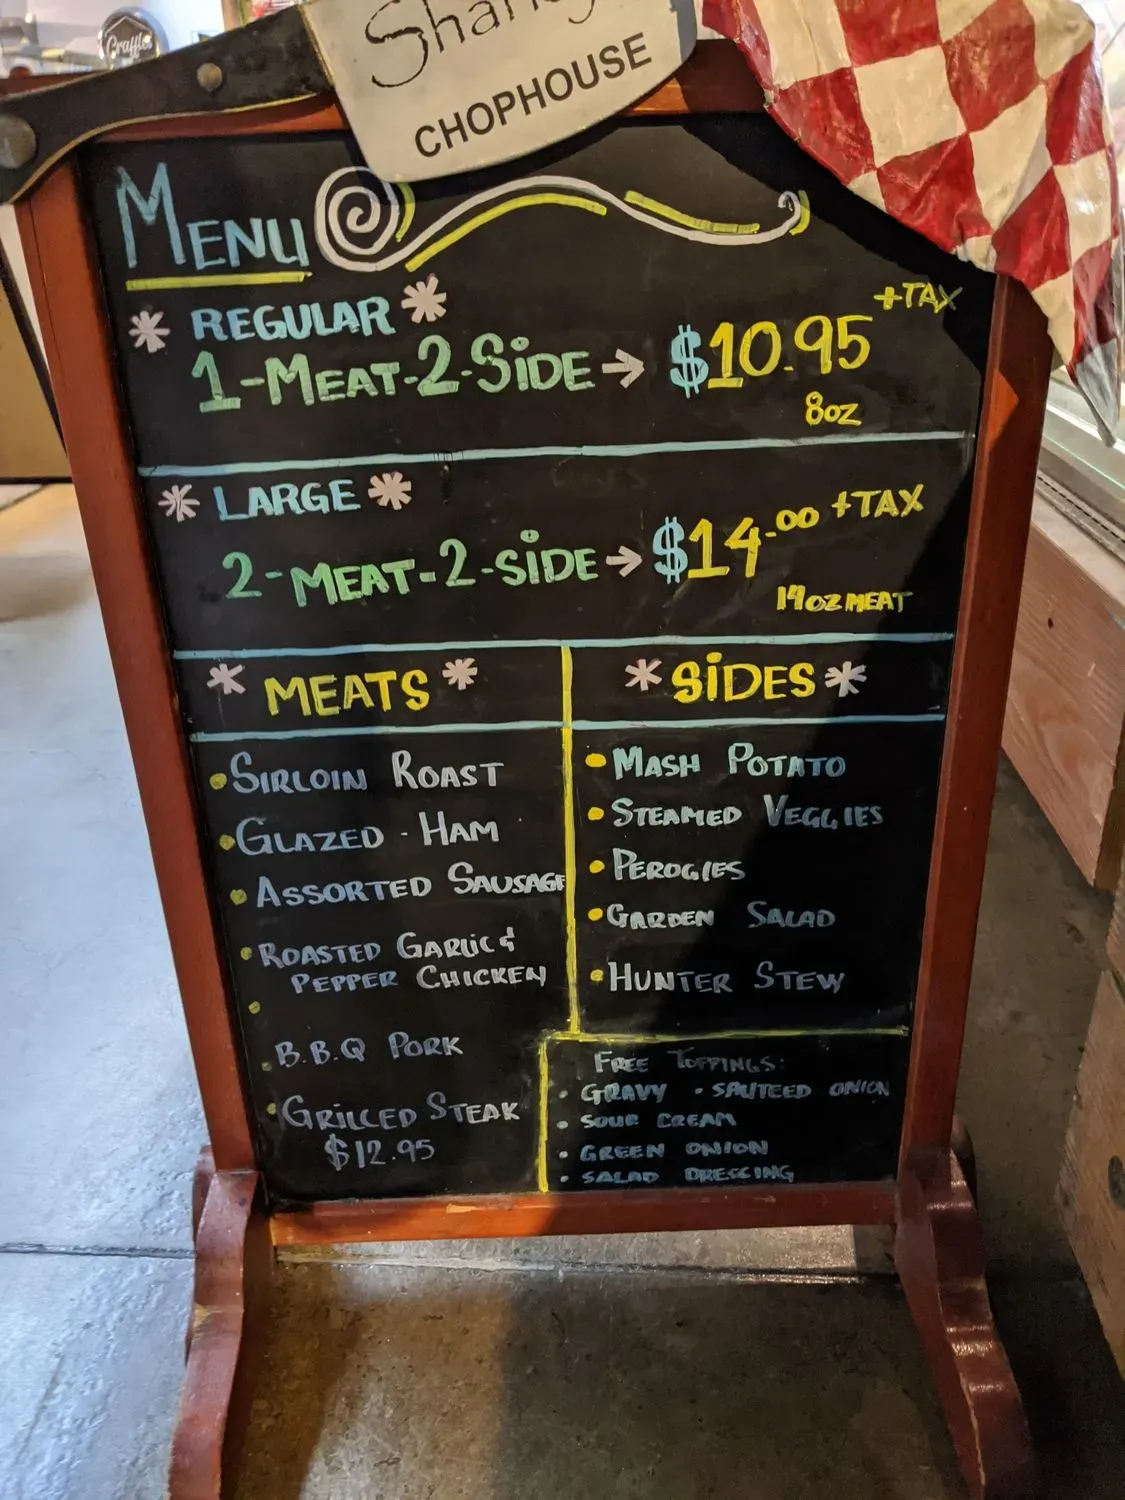 Craffles
CHOPHOUSE
MENU
REGULAR
+TAX
1-MEAT-2-SIDE → $10.95
8oz
LARGE
2-MEAT-2-SIDE → $14.00 +TAX
14oz MEAT
MEATS
SIDES
• SIRLOIN ROAST
• GLAZED - HAM
• ASSORTED SAUSAGE
• ROASTED GARLIC &
PEPPER CHICKEN
• B.B.Q PORK
• GRILLED STEAK
$12.95
• MASH POTATO
• STEAMED VEGGIES
• PEROGIES
• GARDEN SALAD
• HUNTER STEW
FREE TOPPINGS:
• GRAVY • SAUTEED ONION
• SOUR CREAM
• GREEN ONION
• SALAD DRESSING